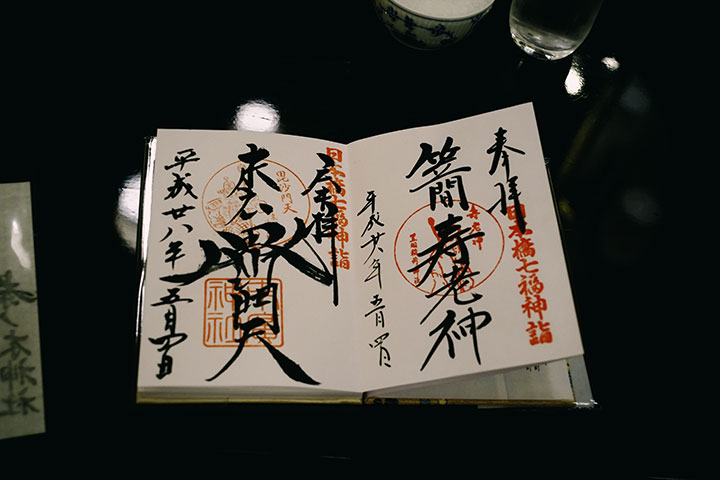 奉拝
日本橋七福神詣
笠間寿老神
寿老神
平成廿八年五月四日
日本橋七福神詣
奉拝
末廣毘沙門天
毘沙門天
平成廿八年五月四日
茶ノ木神社